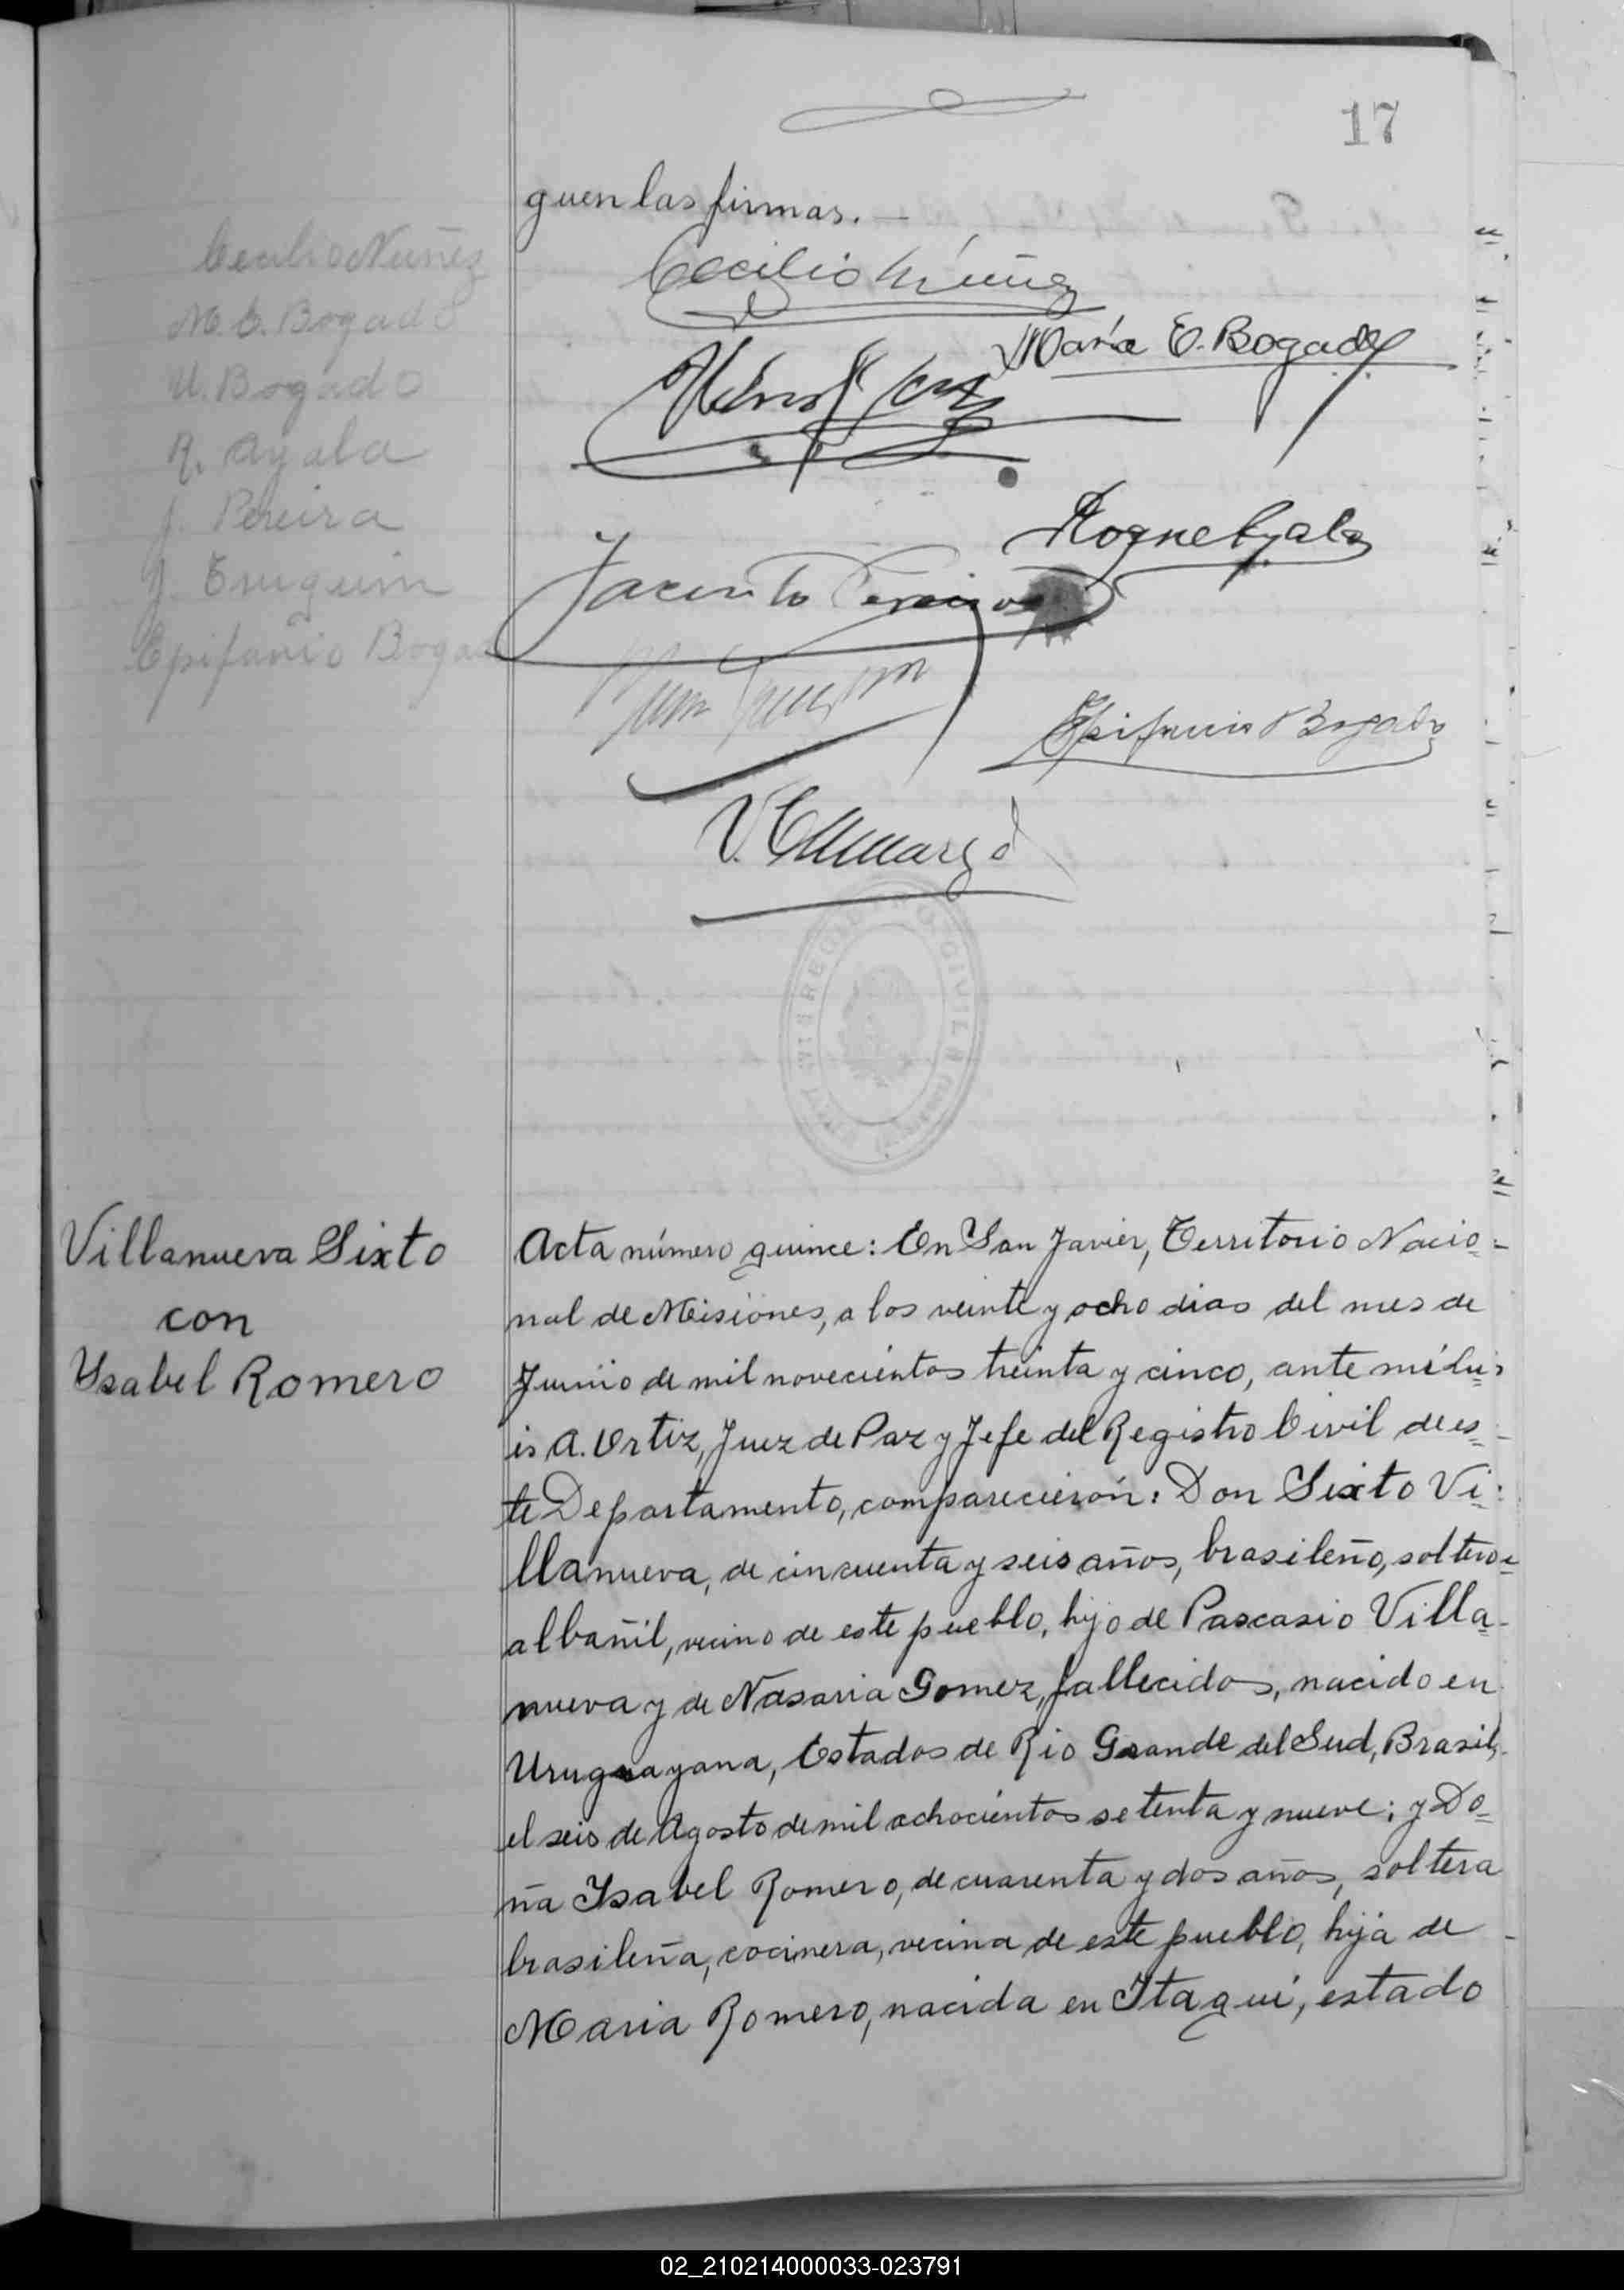 17
guen las firmas. —
Cecilio Nuñez
M. E. Bogado
U. Bogado
R. Ayala
J. Pereira
J. Truguin
Epifanio Boga
Cecilio Núñez
María E. Bogado
Roque Ayala
Jacinto Pereira
Epifanio Bogado
REGISTRO CIVIL
Villanueva Sixto
con
Ysabel Romero
Acta número quince: En San Javier, Territorio Nacio-
nal de Misiones, a los veinte y ocho dias del mes de
Junio de mil novecientos treinta y cinco, ante mí Lu-
is A. Ortiz, Juez de Paz y Jefe del Registro Civil de es-
te Departamento, comparecierón: Don Sixto Vi-
llanueva, de cincuenta y seis años, brasileño, soltero
albañil, vecino de este pueblo, hijo de Pascasio Villa-
nueva y de Nasaria Gomez, fallecidos, nacido en
Uruguayana, Estados de Rio Grande del Sud, Brasil,
el seis de Agosto de mil ochocientos setenta y nueve; y Do-
ña Ysabel Romero, de cuarenta y dos años, soltera
brasileña, cocinera, vecina de este pueblo, hija de
Maria Romero, nacida en Itaqui, estado
02_210214000033-023791